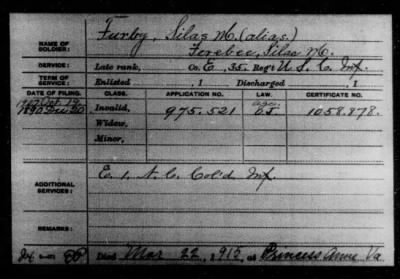 NAME OF SOLDIER:
Furby, Silas M. (alias)
Ferebee, Silas M.
SERVICE:
Late rank, Co. E, 35 Reg't U. S. C. Inf.
TERM OF SERVICE:
Enlisted , 1 Discharged , 1
DATE OF FILING. CLASS. APPLICATION NO. LAW. CERTIFICATE NO.
1890 Dec 20 Invalid, 975.521 1058.878.
Widow,
Minor,
ADDITIONAL SERVICES:
E. 1. N. C. Col'd Inf.
REMARKS:
Died Mar 22, 1915, at Princess Anne Va